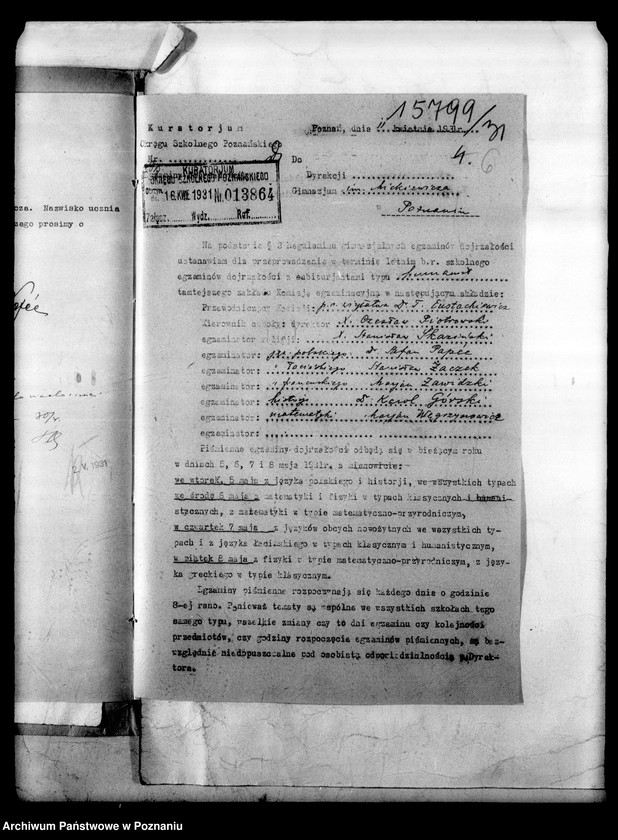 15799/31
Kuratorjum
Okręgu Szkolnego Poznańskiego
Nr.
Poznań, dnia 11 kwietnia 1931r.
4. 6
Do
Dyrekcji
Gimnazjum im. Mickiewicza
w Poznaniu
KURATORJUM
OKRĘGU SZKOLNEGO POZNAŃSKIEGO
16.KWI.1931 Nr. 013864
Załącz. Wydz. Ref.
cza. Nazwisko ucznia
zego prosimy o
2.V.1931
Na podstawie § 3 Regulaminu gimnazjalnych egzaminów dojrzałości
ustanawiam dla przeprowadzenia w terminie letnim b.r. szkolnego
egzaminów dojrzałości z abiturjentami typu humanist
tamtejszego zakładu Komisję egzaminacyjną w następującym składzie:
Przewodniczący Komisji: p.o. wizytatora Dr. T. Eustachiewicz
Kierownik szkoły: dyrektor X. Czesław Piotrowski
egzaminator religji: X. Stanisław Skaziński
egzaminator: jęz. polskiego Dr. Stefan Papée
egzaminator: " łacińskiego Stanisław Żaczek
egzaminator: " niemieckiego Marjan Zawidzki
egzaminator: historji Dr. Karol Górski
egzaminator: matematyki Marjan Węgrzynowicz
egzaminator:
Piśmienne egzaminy dojrzałości odbędą się w bieżącym roku
w dniach 5, 6, 7 i 8 maja 1931r. a mianowicie:
we wtorek, 5 maja z języka polskiego i historji, we wszystkich typach
we środę 6 maja z matematyki i fizyki w typach klasycznych i humani-
stycznych, z matematyki w typie matematyczno-przyrodniczym,
w czwartek 7 maja z języków obcych nowożytnych we wszystkich ty-
pach i z języka łacińskiego w typach klasycznym i humanistycznym,
w piątek 8 maja z fizyki w typie matematyczno-przyrodniczym, z języ-
ka greckiego w typie klasycznym.
Egzaminy piśmienne rozpoczynają się każdego dnia o godzinie
8-ej rano. Ponieważ tematy są wspólne we wszystkich szkołach tego
samego typu, wszelkie zmiany czy to dni egzaminu czy kolejności
przedmiotów, czy godziny rozpoczęcia egzaminów piśmiennych, są bez-
względnie niedopuszczalne pod osobistą odpowiedzialnością p. Dyrek-
tora.
Archiwum Państwowe w Poznaniu